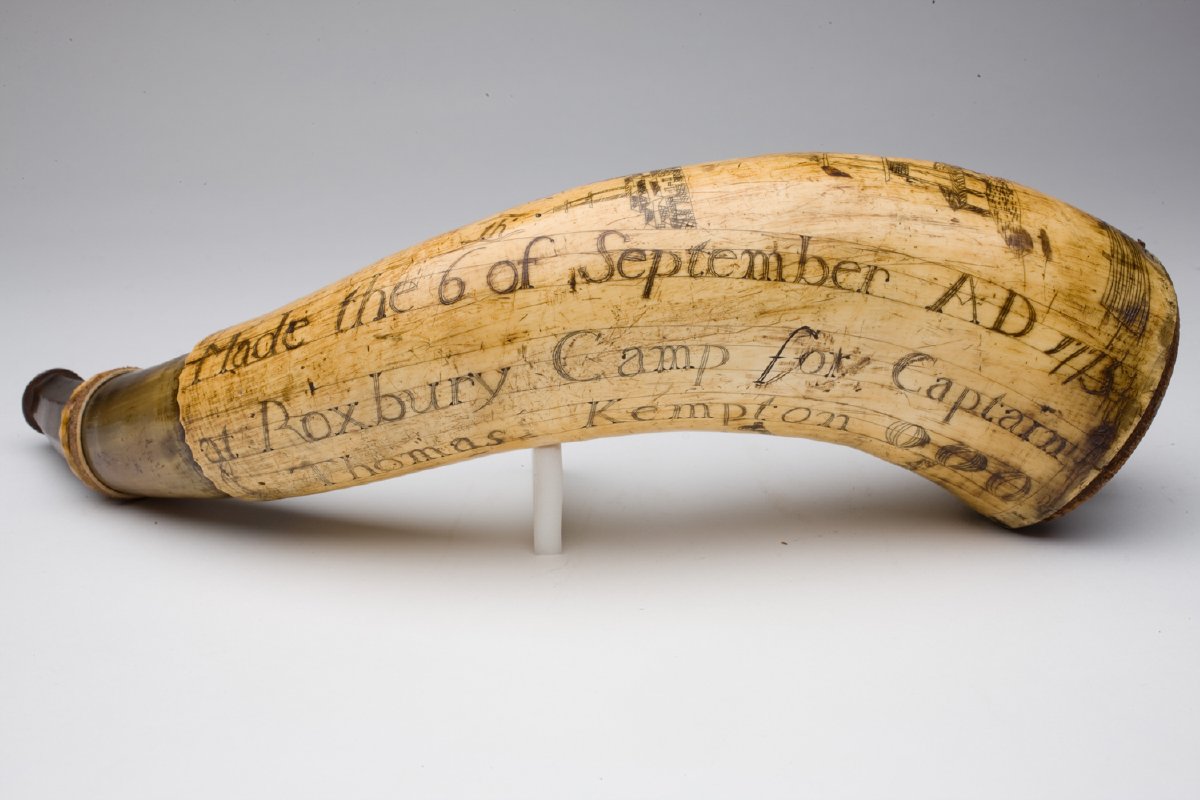 Made the 6th of September AD 1775
at Roxbury Camp for Captain
Thomas Kempton